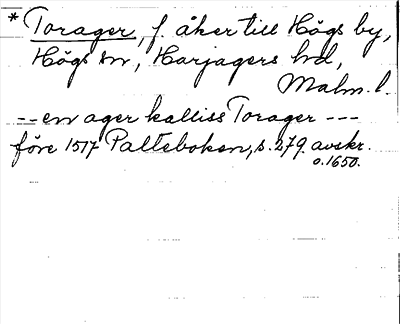 * Torager, f. åker till Högs by,
Högs sn, Harjagers hd,
Malm. l.
-- en ager kalliss Torager ---
före 1517 Palteboken, s. 279. avskr.
o. 1650.